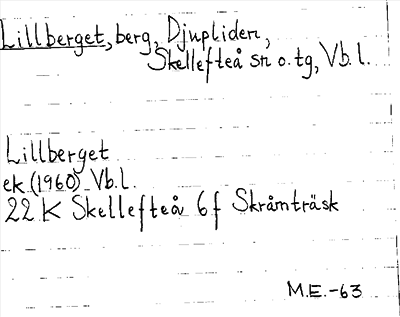 Lillberget, berg, Djupliden,
Skellefteå sn o. tg, Vb. l.
Lillberget
ek. (1960) Vb. l.
22 K Skellefteå 6 f Skråmträsk
M.E.-63